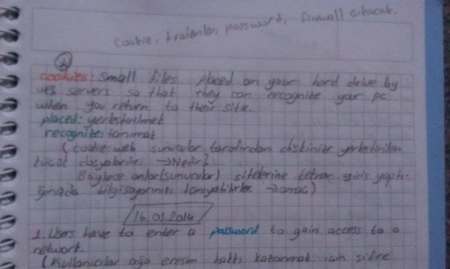 cookie, password, firewall çıkacak.
2
cookies: Small files placed on your hard drive by
web servers so that they can recognite your pc
when you return to their site.
placed: yerleştirilmek
recognite: tanımak
( cookie: web sunucular tarafından diskinize yerleştirilen
küçük dosyalardır. → Nedir)
Böylece onlar (sunucular) sitelerine tekrar giriş yaptı-
ğınızda bilgisayarınızı tanıyabilirler → amaç)
16.01.2014
1. Users have to enter a password to gain access to a
network.
( Kullanıcılar ağa erişim hakkı kazanmak için şifre